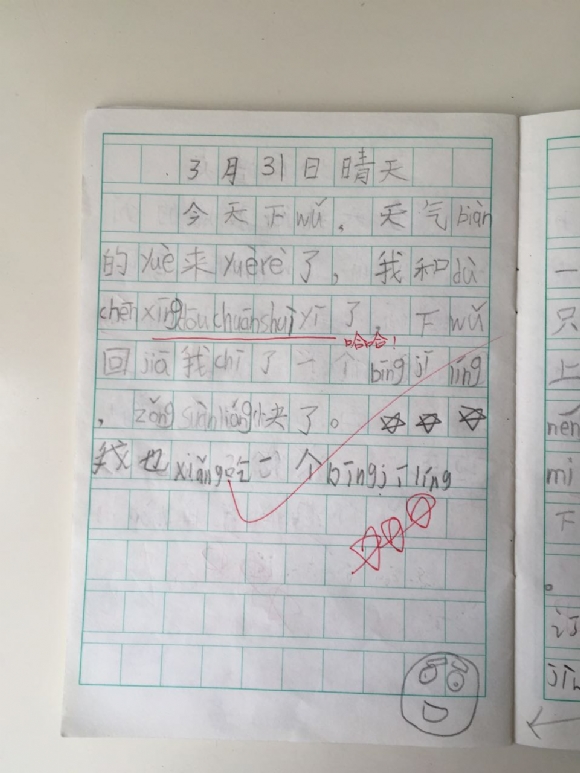 3月31日晴天
今天下wǔ,天气biàn
的yuè来yuèrè了,我和dù
chēnxīngdōuchuānshuìyī了,下wǔ
哈哈!
回jiā我chī了一个bīngjīlíng
,zǒngsirànliáng快了。
我也xiǎng吃 个bīngjīlíng
一
只
上
nén
mi
下
。
jīn